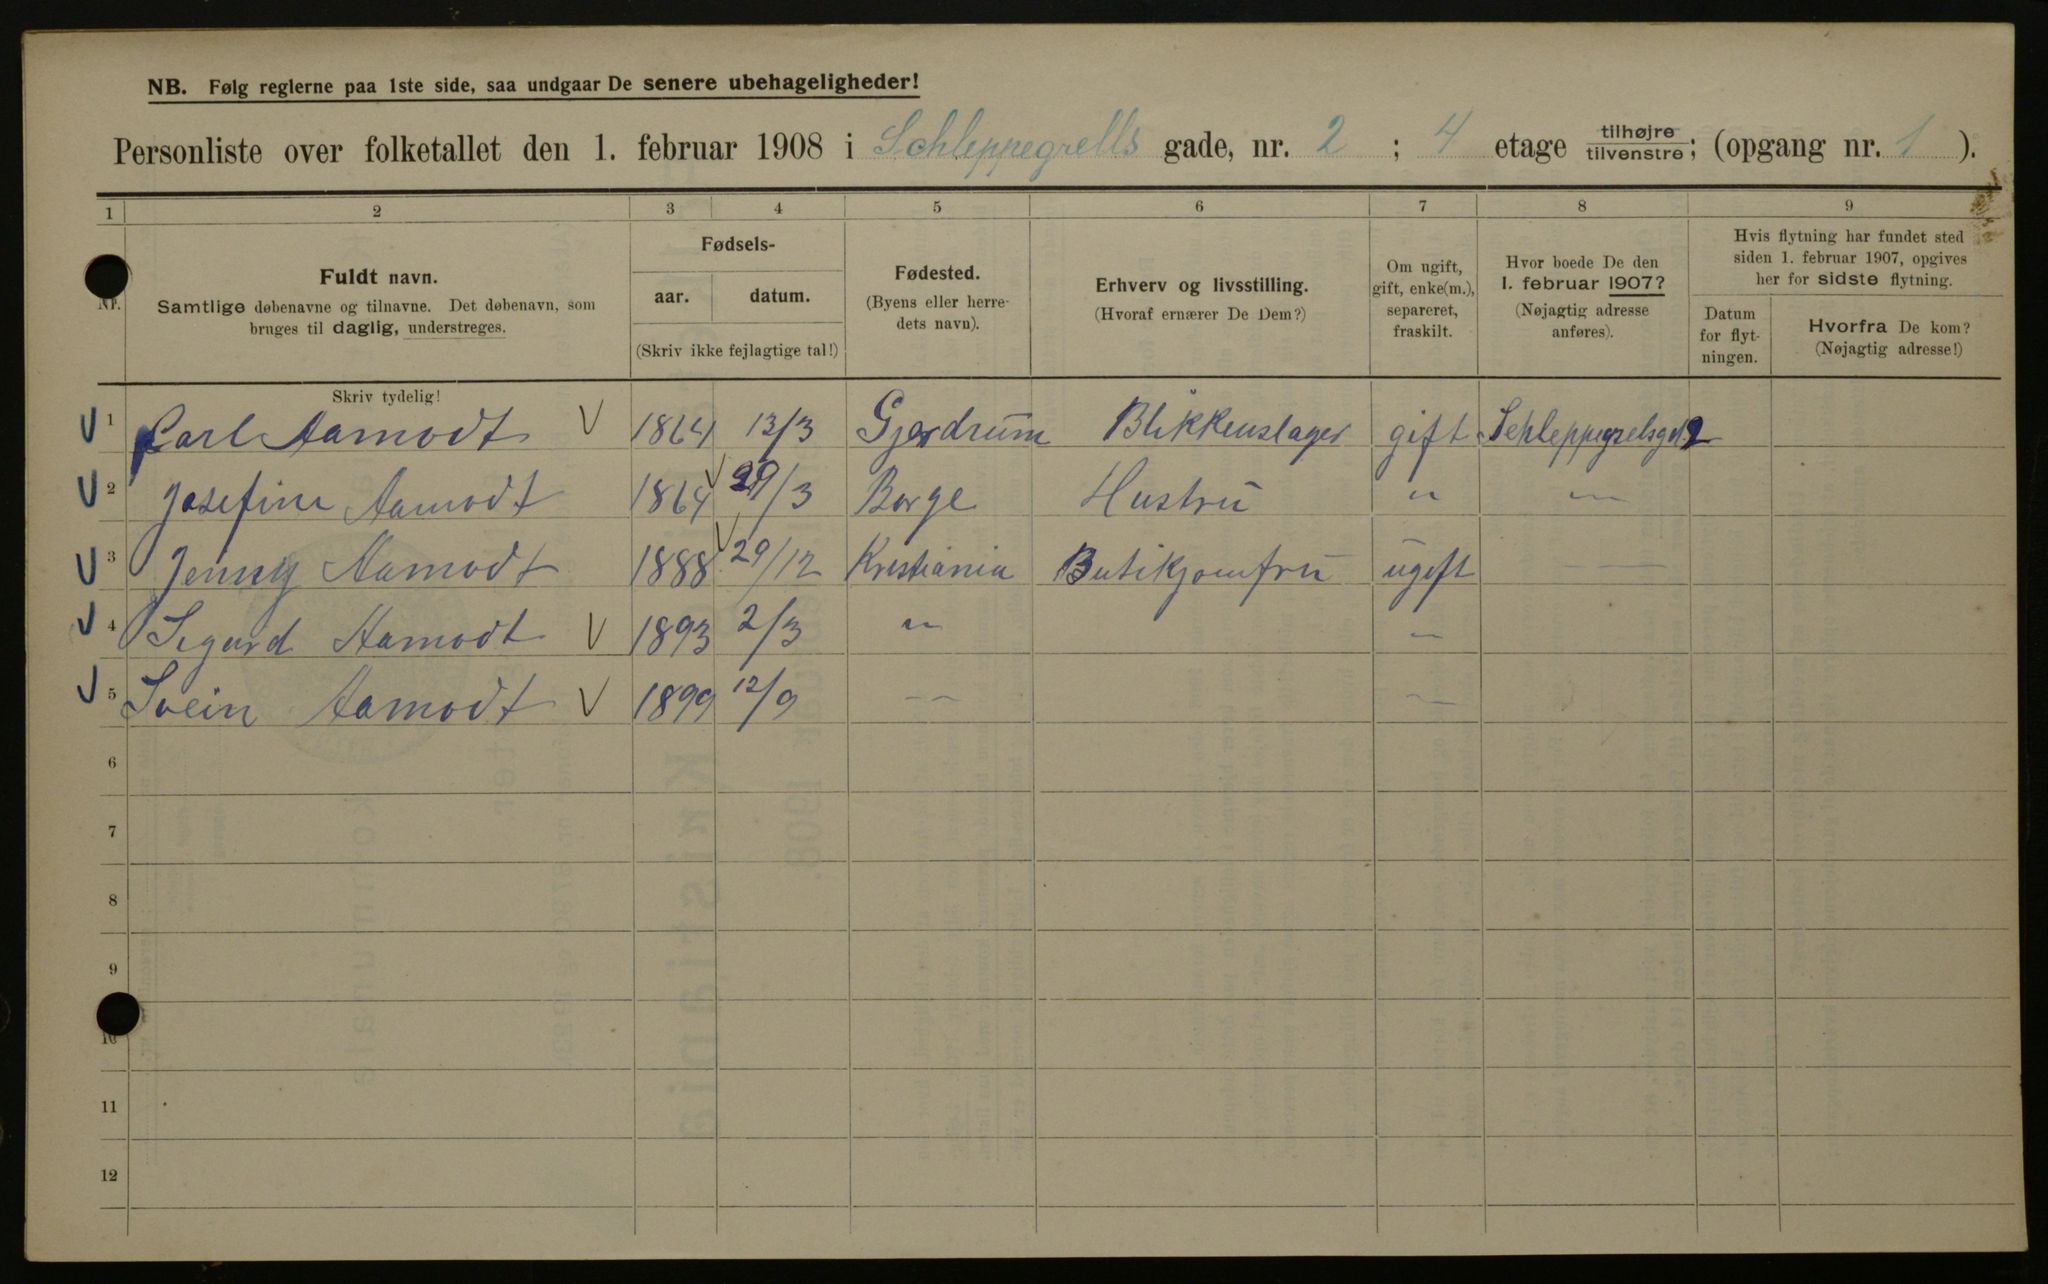 NB. Følg reglerne paa 1ste side, saa undgaar De senere ubehageligheder!
Personliste over folketallet den 1. februar 1908 i Schleppegrells gade, nr. 2 ; 4 etage tilhøjre/tilvenstre; (opgang nr. 1 ).
1 2 3 4 5 6 7 8 9
Nr.
Fuldt navn.
Samtlige døbenavne og tilnavne. Det døbenavn, som
bruges til daglig, understreges.
Skriv tydelig!
Fødsels-
aar. datum.
(Skriv ikke fejlagtige tal!)
Fødested.
(Byens eller herre-
dets navn).
Erhverv og livsstilling.
(Hvoraf ernærer De Dem?)
Om ugift,
gift, enke(m.),
separeret,
fraskilt.
Hvor boede De den
1. februar 1907?
(Nøjagtig adresse
anføres).
Hvis flytning har fundet sted
siden 1. februar 1907, opgives
her for sidste flytning.
Datum
for flyt-
ningen.
Hvorfra De kom?
(Nøjagtig adresse!)
V 1 Carl Aamodt V 1864 13/3 Gjerdrum Blikkenslager gift Schleppegrelsgd. 2
V 2 Josefine Aamodt 1864 V 29/3 Borge Hustru " — "
V 3 Jenny Aamodt 1888 V 29/12 Kristiania Butikjomfru ugift —
V 4 Sigurd Aamodt V 1893 2/3 " "
V 5 Svein Aamodt V 1899 12/9 — —
6
7
8
9
10
11
12